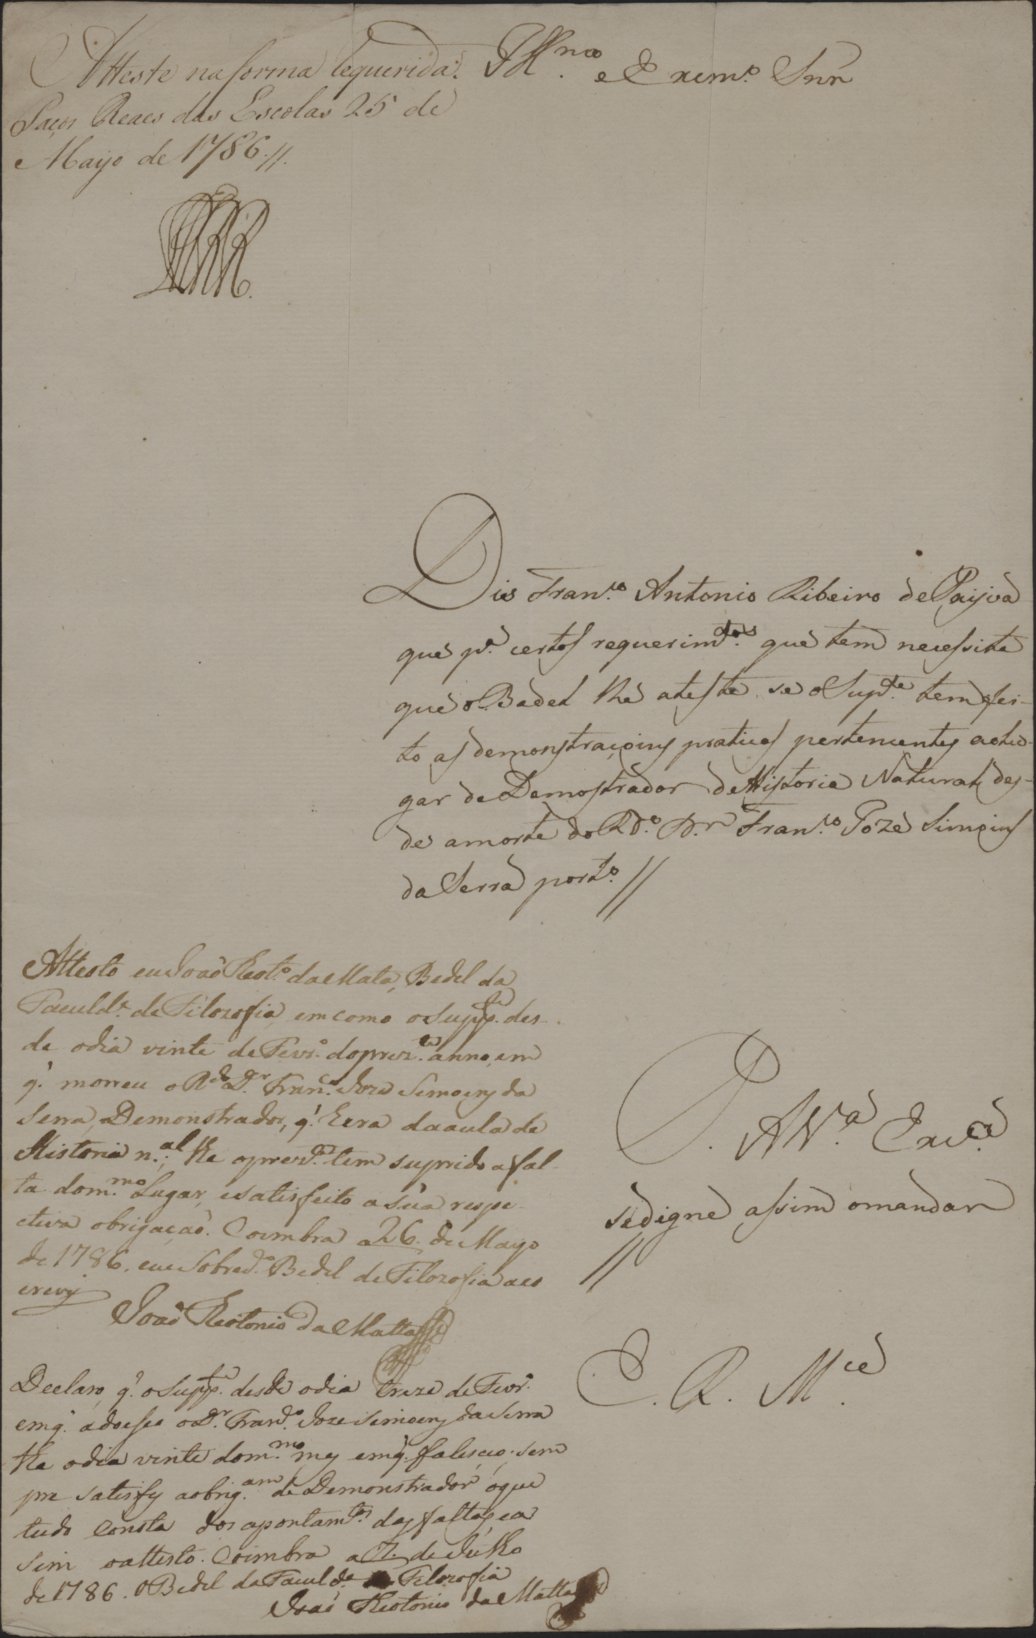 Atteste na forma requerida.
Paços Reaes das Escolas 25 de
Mayo de 1786 //.
Ill.mo e Excmo. Snr
Dis Fran.co Antonio Ribeiro de Payva
que p.a certos requerim.tos que tem necessita
que o Badel lhe ateste se o Sup.te tem fei-
to as demonstraçoins praticas pertencentes ao lu-
gar de Demostrador de Historia Natural des-
de a morte do R.do D.r Fran.co Joze Simoins
da Serra por t.o //
P. A V.a Exc.a
se digne assim o mandar
//
E. R. M.ce
Attesto eu Joaõ Theot.o da Mata, Bedel da
Faculd.e de Filozofia em como o Supp.te des-
de o dia vinte de Fevr.o do prez.te anno, em
q. morreu o R.do D.r Fran.co Joze Simoens da
Serra, Demonstrador, q. Era da aula de
Historia n.al, the o prez.te tem suprido a fal-
ta do m.mo Lugar, e satisfeito a sua respe-
ctiva obrigaçaõ. Coimbra a 26 de Mayo
de 1786. eu o Sobred.o Bedel de Filozofia a es
crevy
Joaõ Theotonio da Matta
Declaro, q. o Supp.te desde o dia treze de Fevr.o
em q. adoeseo o D.r Fran.co Joze Simoens da Serra
the o dia vinte do m.mo mes em q. faleceo, sem
pre satisfez a obrig.am de Demonstrador o que
tudo consta dos apontam.tos das faltas, e a
sim o attesto. Coimbra a 7 de Julho
de 1786. O Bedel da Faculd.e de Filozofia
Joaõ Theotonio da Matta